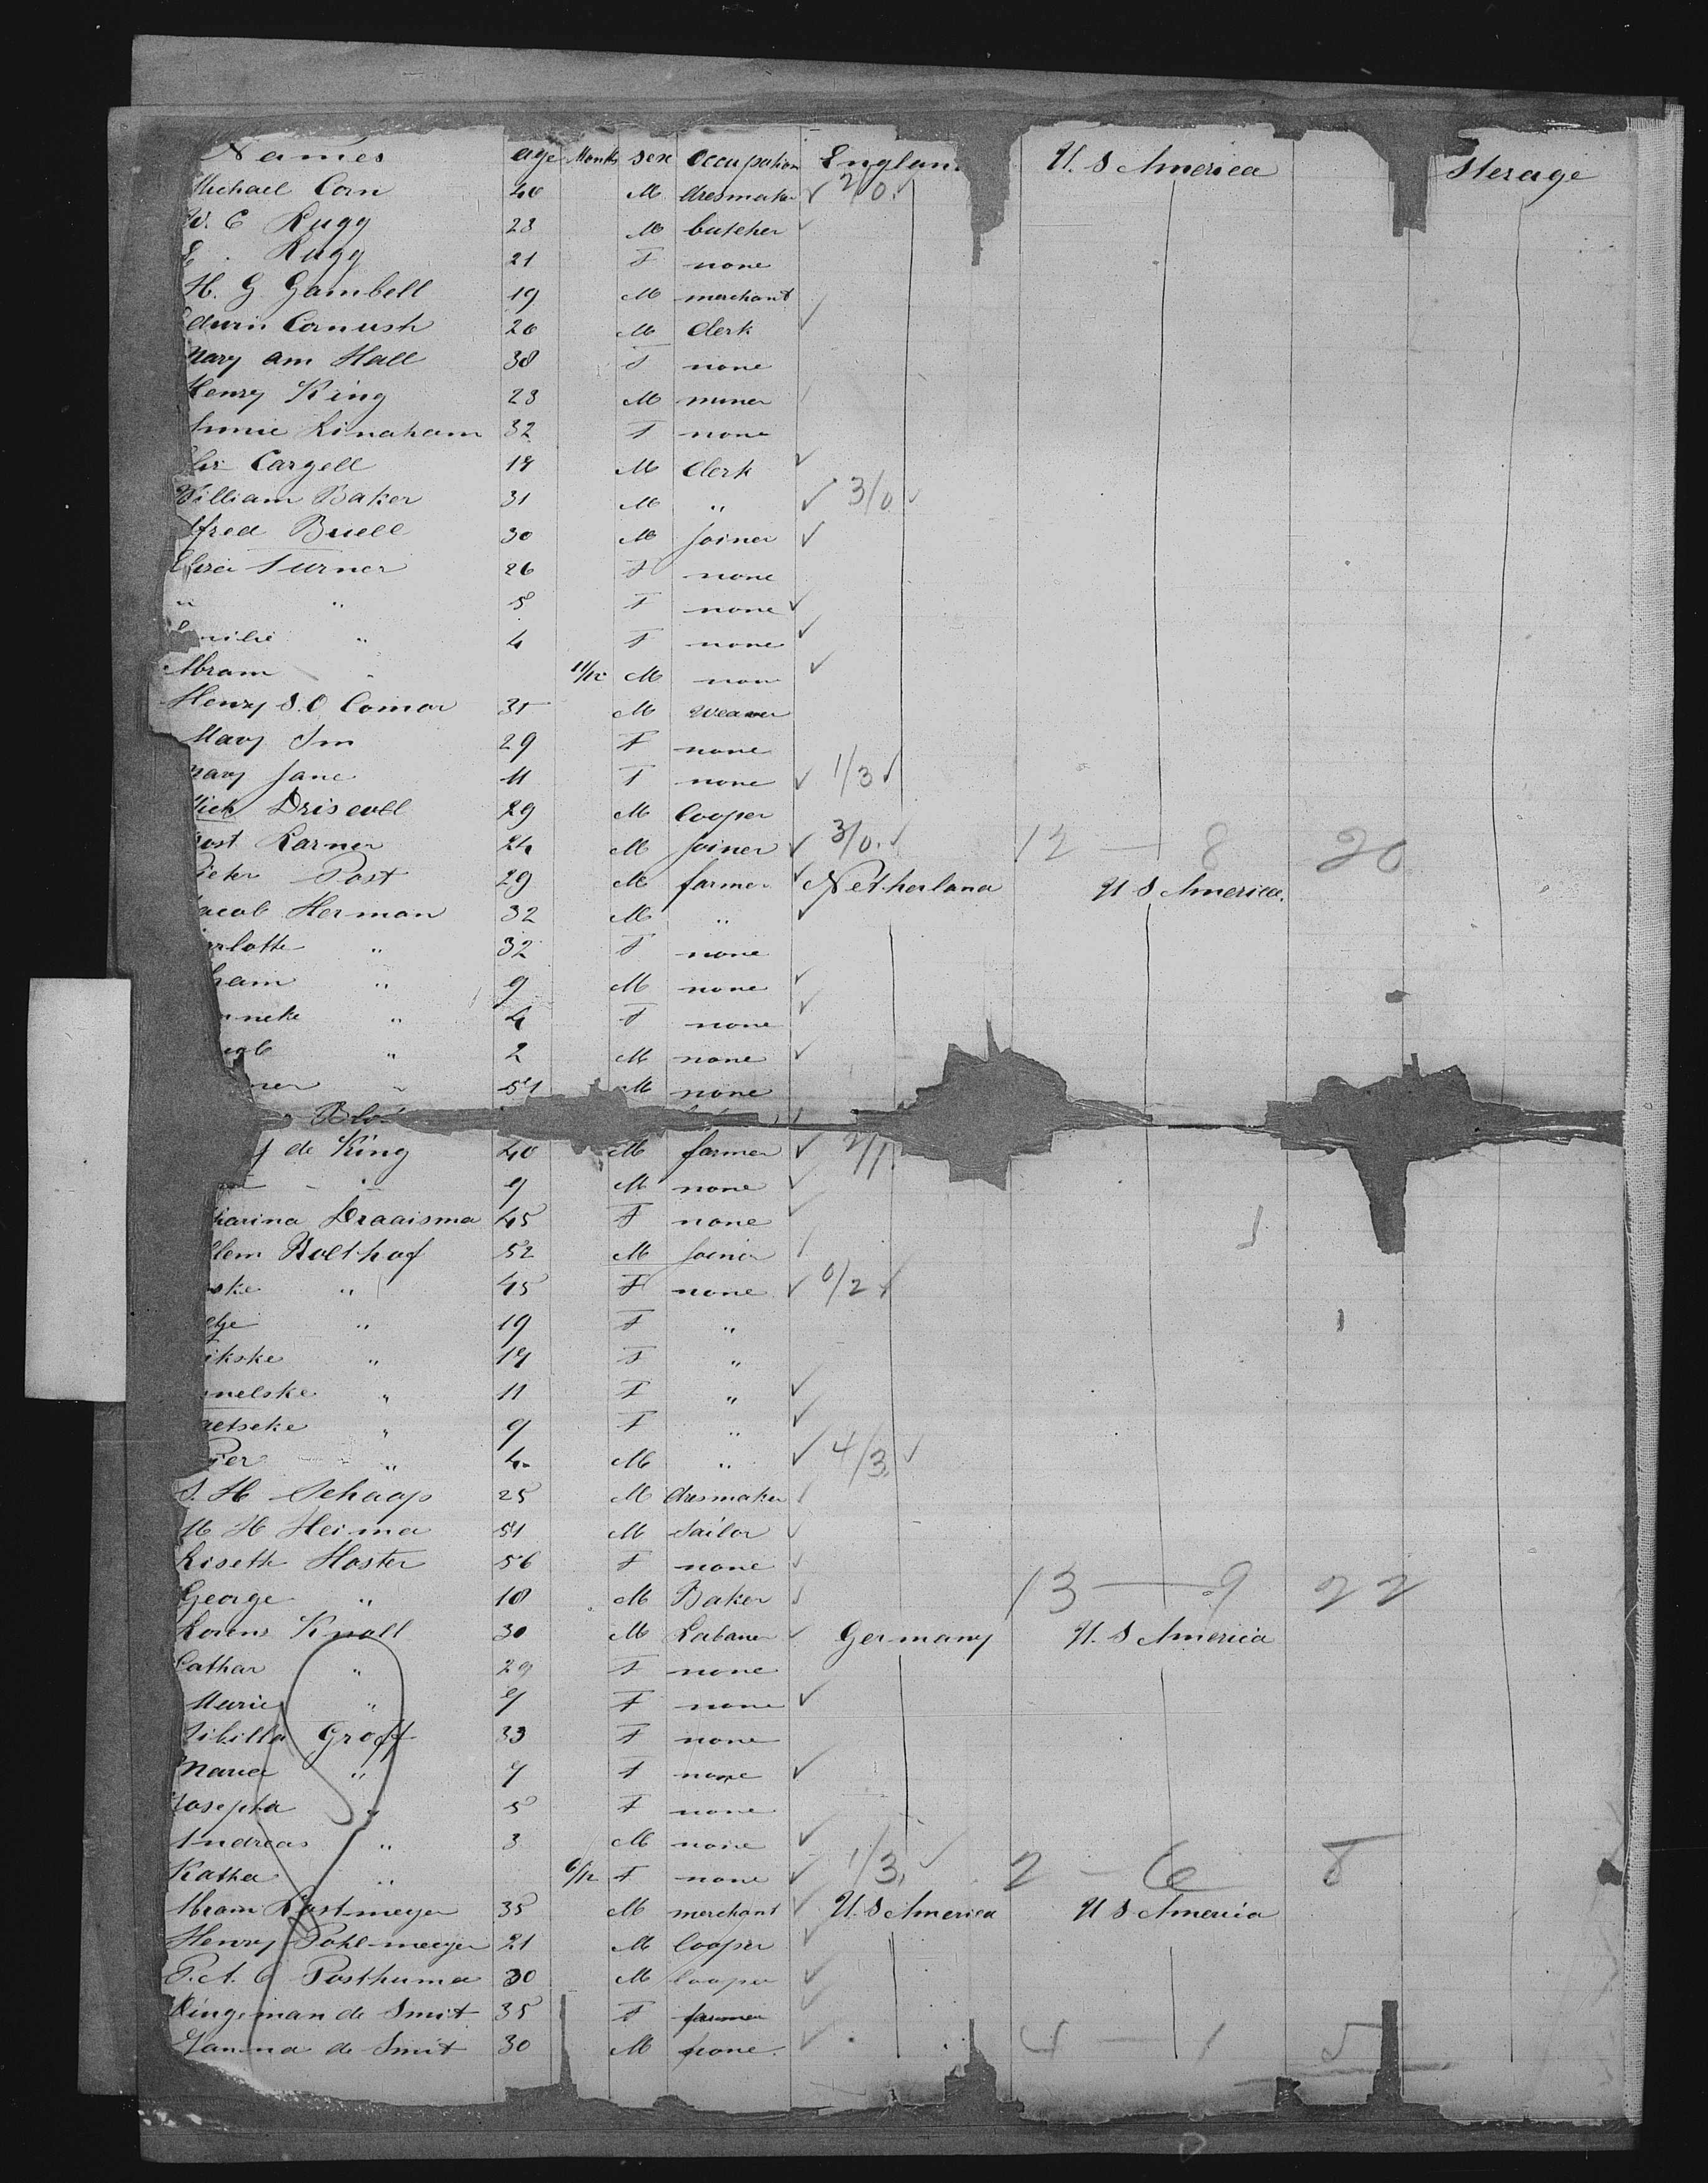 Names age Months sex Occupation England U. S America Sterage
Michael Corn 40 M dresmaker ✓ 2/0 ✓
W. C Rugg 23 M butcher ✓
Rugg 21 F none
H. G Gambell 19 M merchant
dwin Cornush 20 M Clerk ✓
Mary am Hall 38 F none
Henry King 23 M miner
Annie Kinaham 32 F none
Cargell 19 M Clerk ✓
William Baker 31 M " ✓ 3/0 ✓
lfred Buell 30 M Joiner ✓
Turner 26 F none
" 5 F none ✓
milie " 4 F none ✓
Abram " 11/12 M non ✓
Henry S. O Comor 31 M weaver
Mary 29 F none
Mary Jane 11 F none ✓ 1/3 ✓
Mich Driscoll 29 M Cooper
ost Karner 24 M Joiner ✓ 3/0 ✓ 12 — 8 20
ieter Post 29 M farmer ✓ Netherland U S America.
acob Herman 32 M " ✓
arlotte " 32 F none
ham " 9 M none ✓
nneke " 4 F none ✓
" 2 M none ✓
ner " 51 M none
Blo
de King 40 M farmer ✓ 2/1
" 9 M none ✓
harina Draaisma 45 F none ✓
llem Bolthof 52 M Joiner
ske " 45 F none ✓ 0/2 ✓
etje " 19 F "
ikske " 17 F "
nelske " 11 F " ✓
aetseke " 9 F " ✓
ier " 4 M " ✓ 4/3 ✓
S. H Schaap 25 M dresmaker
M H Heima 51 M Sailor ✓
Liseth Hoster 56 F none ✓
George " 18 M Baker ✓ 13 — 9 22
Lorens Knoll 30 M Labaner ✓ Germany U. S America
Cathar " 29 F none
Marie " 7 F none ✓
Sibilla Groff 33 F none
Maria " 7 F none ✓
Josepha " 5 F none
Andreas " 3 M none ✓
Katha " 6/12 F none ✓ 1/3 ✓ 2 — 6 8
Abram Rostmeyer 35 M merchant ✓ U. S America U S America
Henry Pohlmeeyer 21 M Cooper ✓
P. A. C Posthuma 30 M Cooper ✓
Kingeman de Smit 35 F farmer ✓
Janna de Smit 30 M none ✓ 4 — 1 5